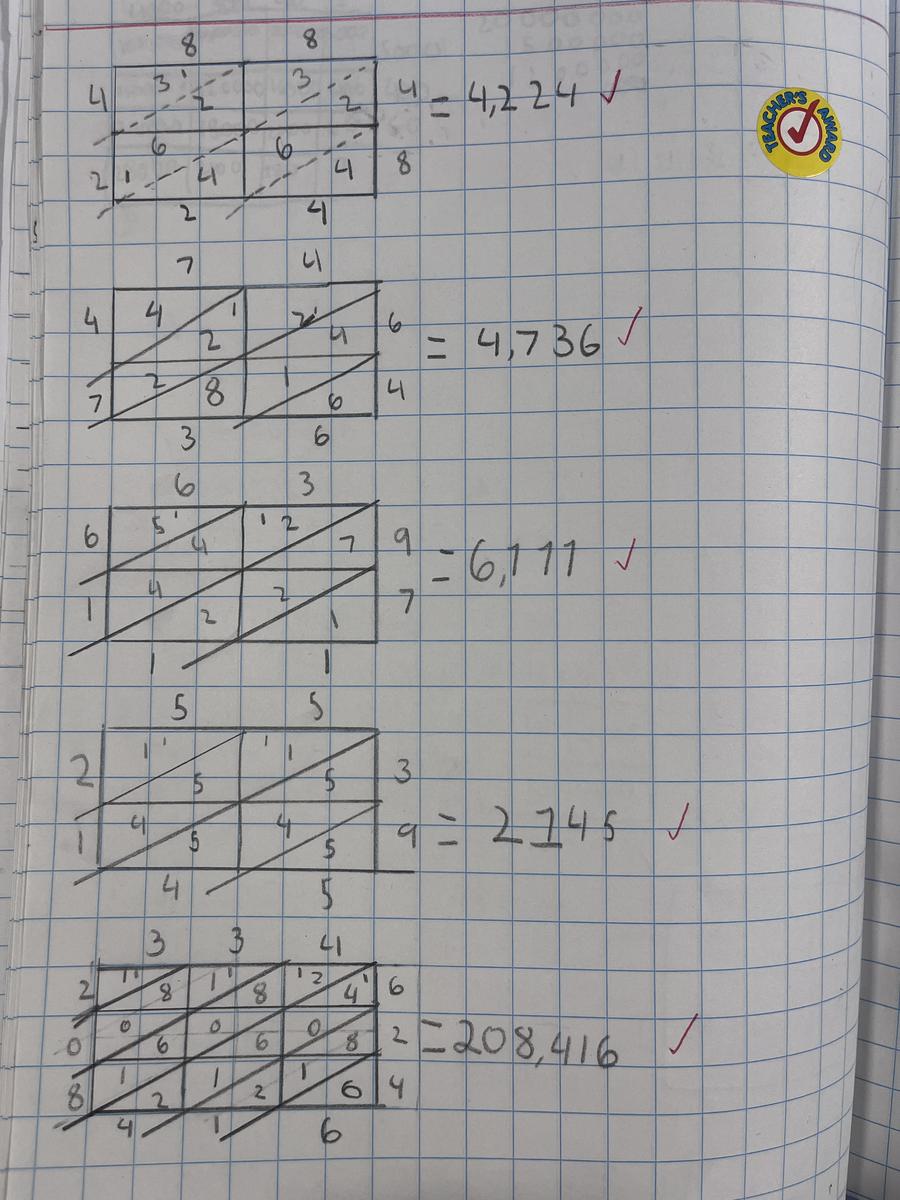 8 8
4 3 1 2 3 2 4 = 4,224 ✓
2 1 6 4 6 4 8
2 4
TEACHER'S AWARD
7 4
4 4 2 1 2 1 4 6 = 4,736 ✓
7 2 8 1 6 4
3 6
6 3
6 5 1 4 1 2 7 9 = 6,111 ✓
1 4 2 2 1 7
1 1
5 5
2 1 1 5 1 1 5 3
1 4 5 4 5 9 = 2145 ✓
4 5
3 3 4
2 1 1 8 1 1 8 1 2 4 1 6
0 0 6 0 6 0 8 2 = 208,416 ✓
8 1 2 1 2 1 6 4
4 1 6